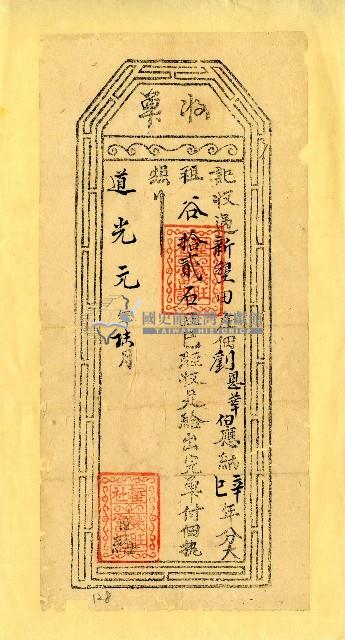 收單
記收過新墾田庄佃劉恩華伯應納辛巳年分大
租谷拾貳石 已經收足給出完單付佃執
照
道光元年 月
國史館臺灣文獻館
TAIWAN HISTORICA
128